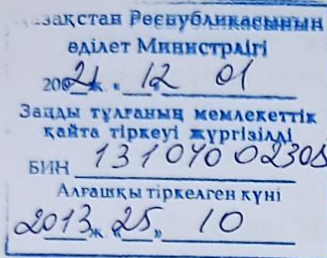 зақстан Республикасының
әділет Министрлігі
2021 ж. «12» 01
Заңды тұлғаның мемлекеттік
қайта тіркеуі жүргізілді
БИН 131040 02305
Алғашқы тіркелген күні
2013 ж. «25» 10